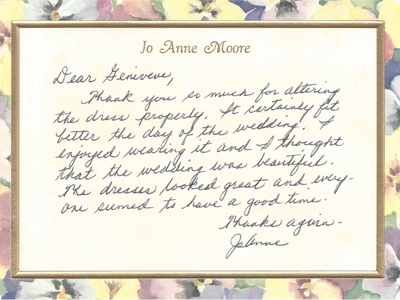 Jo Anne Moore
Dear Genieveve,
Thank you so much for altering
the dress properly. It certainly fit
better the day of the wedding. I
enjoyed wearing it and I thought
that the wedding was beautiful.
The dresses looked great and every-
one seemed to have a good time.
Thanks again-
JoAnne